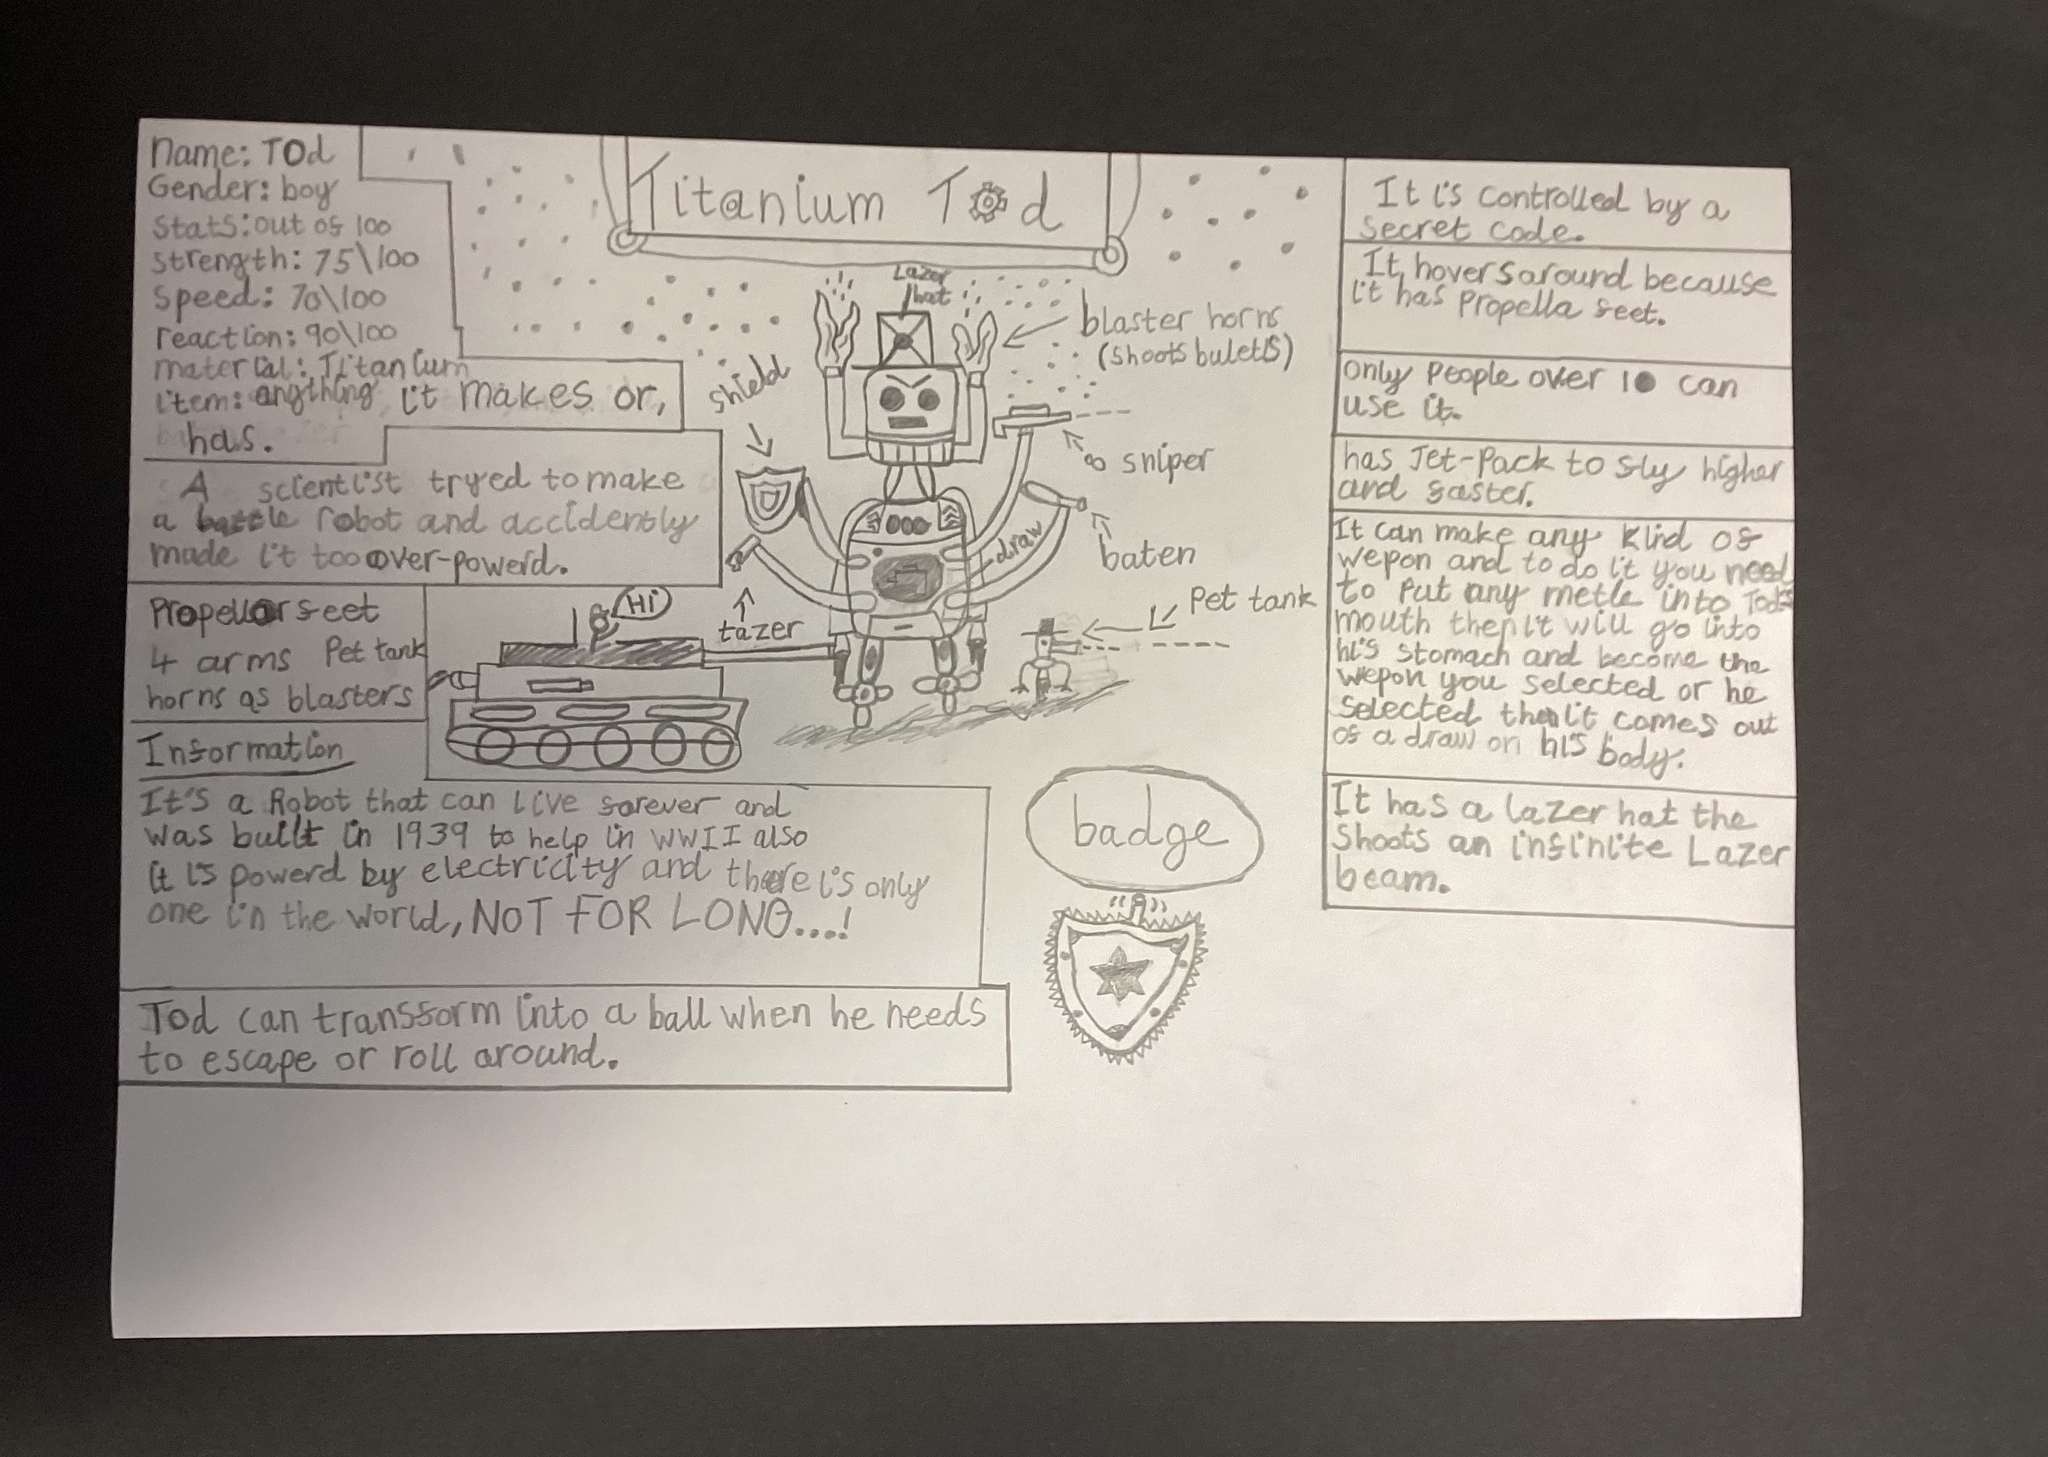 Titanium Tod
Name: TOd
Gender: boy
Stats: out of 100
Strength: 75\100
Speed: 70\100
reaction: 90\100
material: Titanium
item: anything it makes or,
has.
A scientist tryed to make
a battle robot and accidently
made it too over-powerd.
Propellor feet
4 arms Pet tank
horns as blasters
Information
It's a Robot that can live forever and
was built in 1939 to help in WWII also
it is powerd by electricity and there is only
one in the world, NOT FOR LONG....!
Tod can transform into a ball when he needs
to escape or roll around.
Lazer
hat
blaster horns
(shoots buletis)
shield
sniper
baten
draw
tazer
Hi
Pet tank
badge
It is controlled by a
secret code.
It hovers around because
it has Propella feet.
only People over 10 can
use it.
has Jet-Pack to fly higher
and faster.
It can make any kind of
wepon and to do it you need
to put any metle into Tods
mouth then it will go into
his stomach and become the
wepon you selected or he
selected then it comes out
of a draw on his body.
It has a lazer hat the
shoots an infinite Lazer
beam.